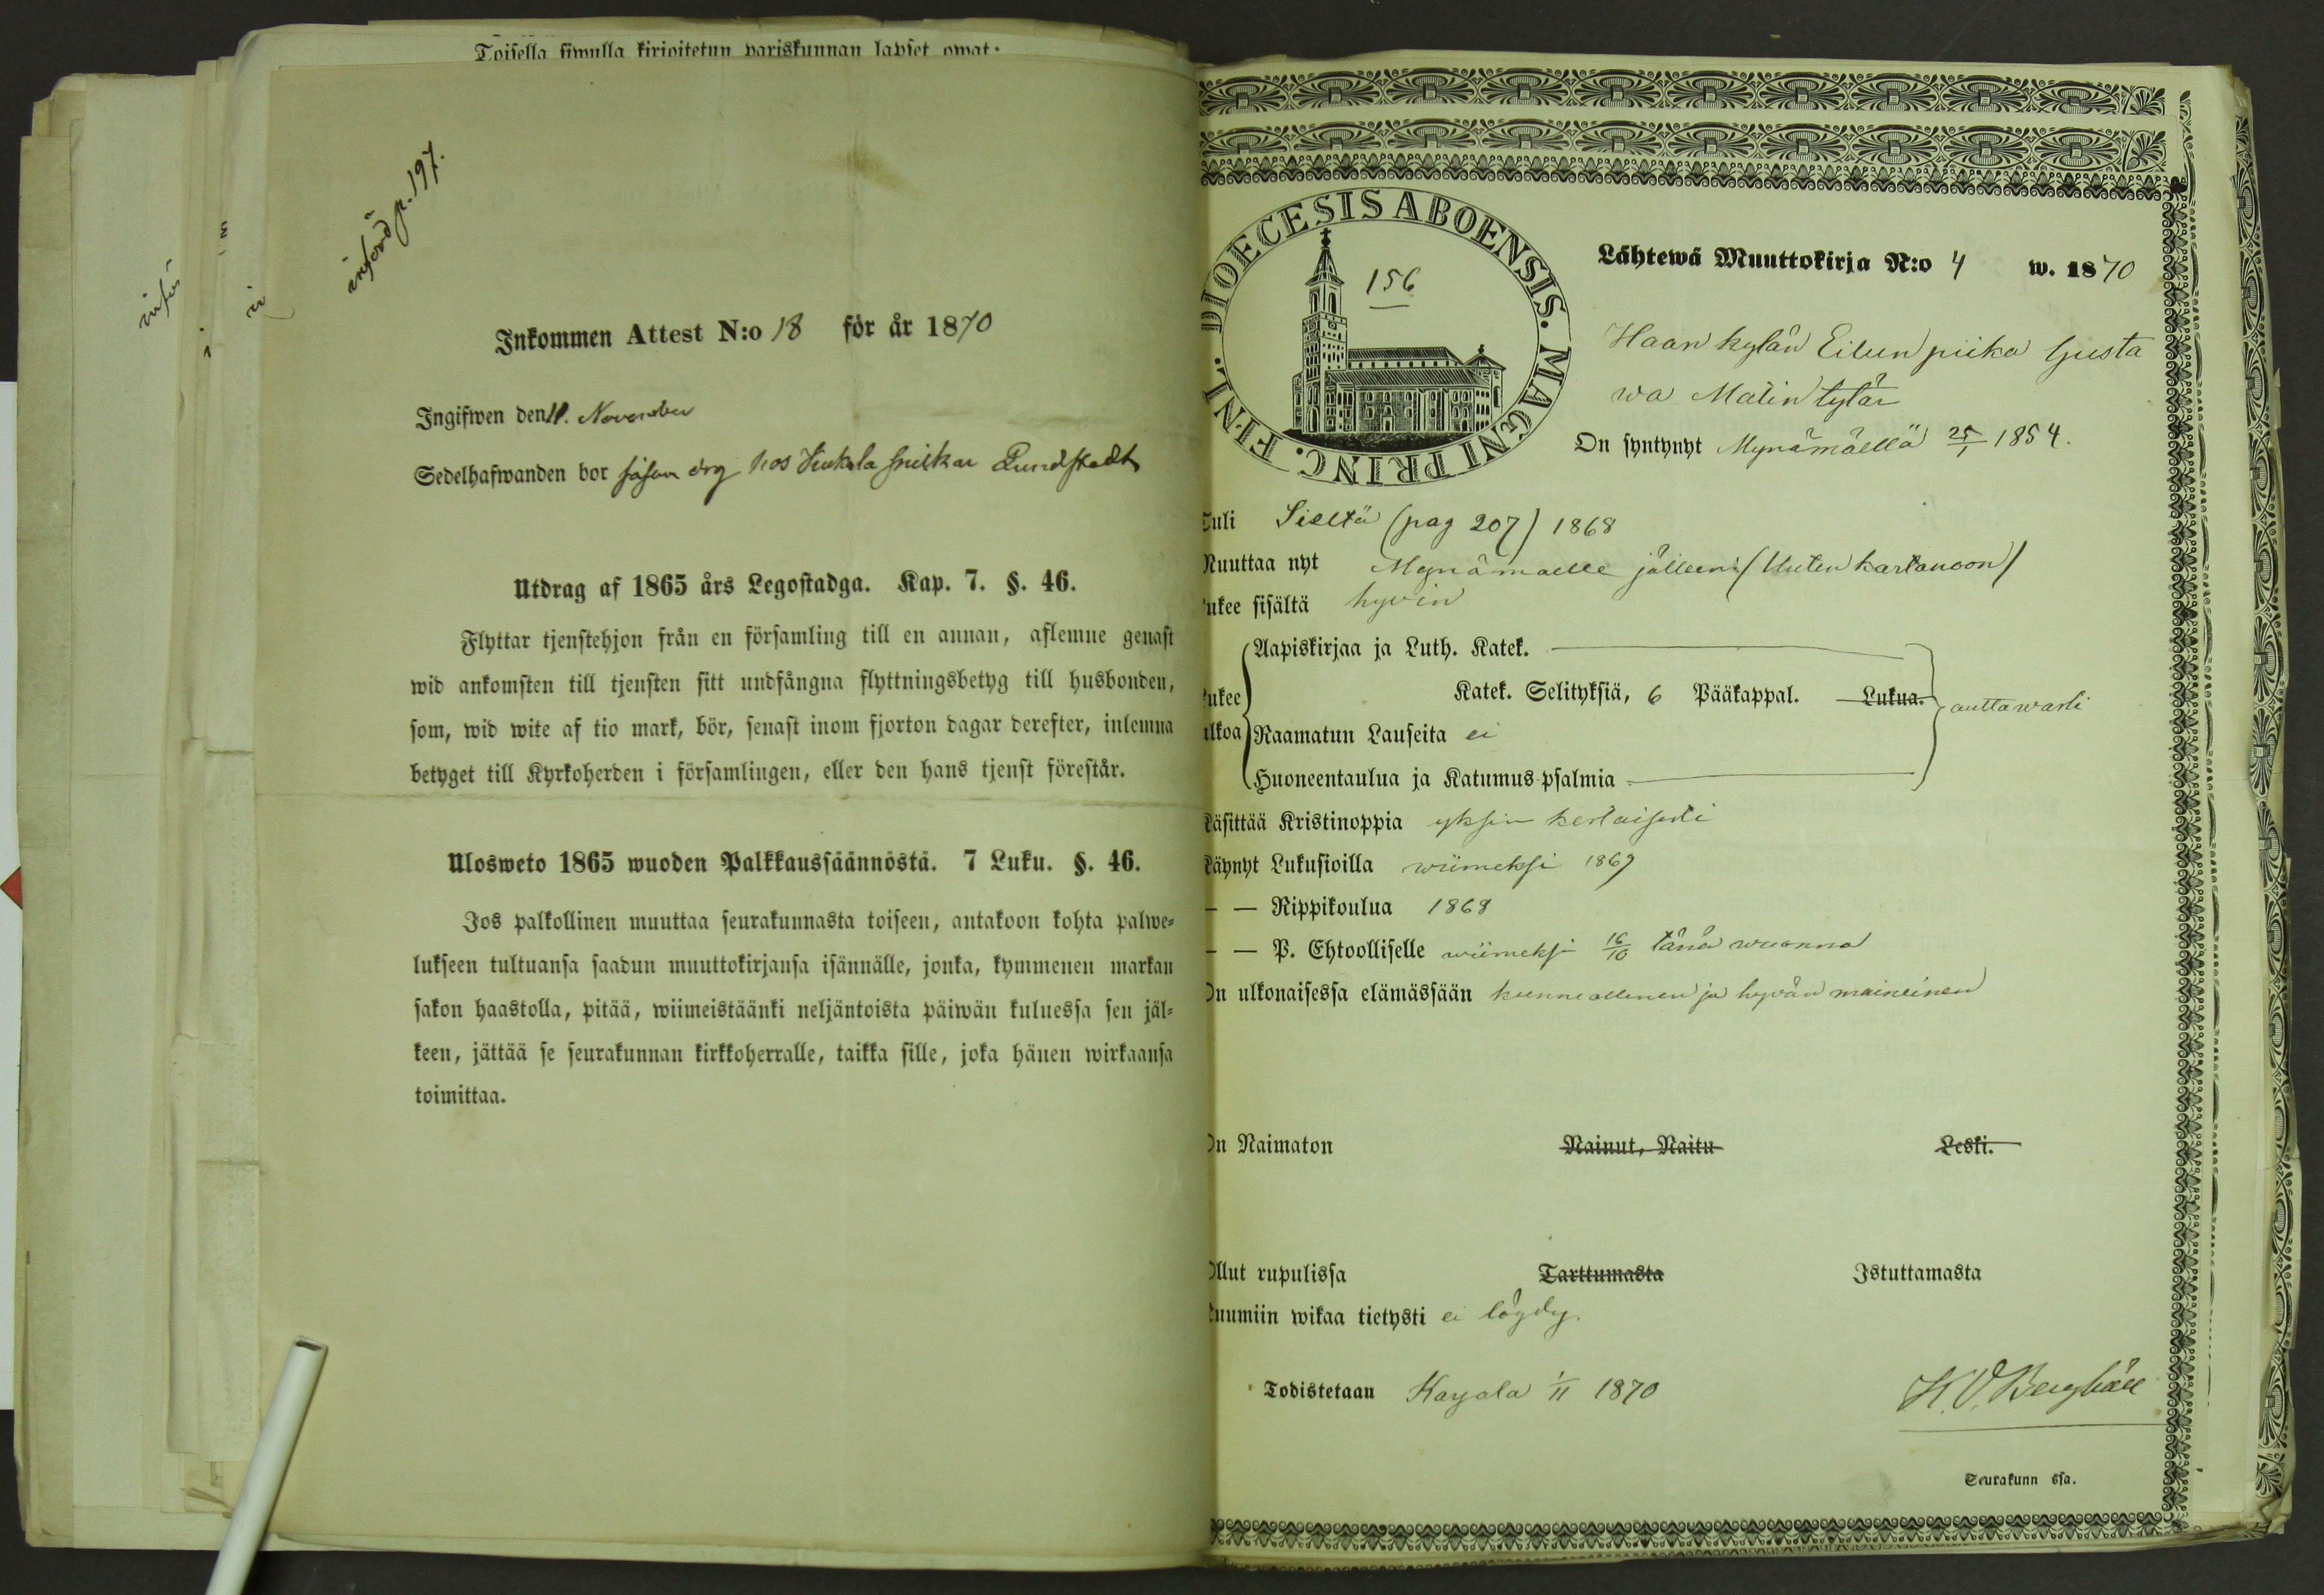 Toisella siwulla kirjoitetun pariskunnan lapset owat:
införd p. 197.
Inkommen Attest N:o 18 för år 1870
Ingifwen den 11. November
Sedelhafwanden bor såsom drg hos Lundstedt
Utdrag af 1865 års Legostadga. Kap. 7. §. 46.
Flyttar tjenstehjon från en församling till en annan, aflemne genast
wid ankomsten till tjensten sitt undfångna flyttningsbetyg till husbonden,
som, wid wite af tio mark, bör, senast inom fjorton dagar derefter, inlemna
betyget till Kyrkoherden i församlingen, eller den hans tjenst förestår.
Ulosweto 1865 wuoden Palkkaussäännöstä. 7 Luku. §. 46.
Jos palkollinen muuttaa seurakunnasta toiseen, antakoon kohta palwe-
lukseen tultuansa saadun muuttokirjansa isännälle, jonka, kymmenen markan
sakon haastolla, pitää, wiimeistäänki neljäntoista päiwän kuluessa sen jäl-
keen, jättää se seurakunnan kirkkoherralle, taikka sille, joka hänen wirkaansa
toimittaa.
DIOECESIS ABOENSIS. MAGNI PRINC. FINL.
156
Lähtewä Muuttokirja N:o 4 w. 1870
Haan kylän Eilun piika Gusta
wa Matin tytär
On syntynyt Mynämäellä 25/1 1854.
Tuli Sieltä (pag 207) 1868
Muuttaa nyt Mynämaelle jälleen (Uuten kartanoon)
Lukee sisältä hyvin
Aapiskirjaa ja Luth. Katek.
Lukee Katek. Selityksiä, 6 Pääkappal. Lukua. auttawasti
ulkoa Raamatun Lauseita ei
Huoneentaulua ja Katumus-psalmia
Käsittää Kristinoppia yksin kertaisesti
Käynyt Lukusioilla wiimeksi 1869
— — Rippikoulua 1868
— — P. Ehtoolliselle wiimeksi 16/10 tänä wuonna
On ulkonaisessa elämässään kunniallinen ja hyvän maineinen
On Naimaton Nainut, Naitu Leski.
Ollut rupulissa Tarttumasta Istuttamasta
Ruumiin wikaa tietysti ei löydy.
Todistetaan Karjala 1/11 1870
K. V. Berghäll
Seurakunn ssa.